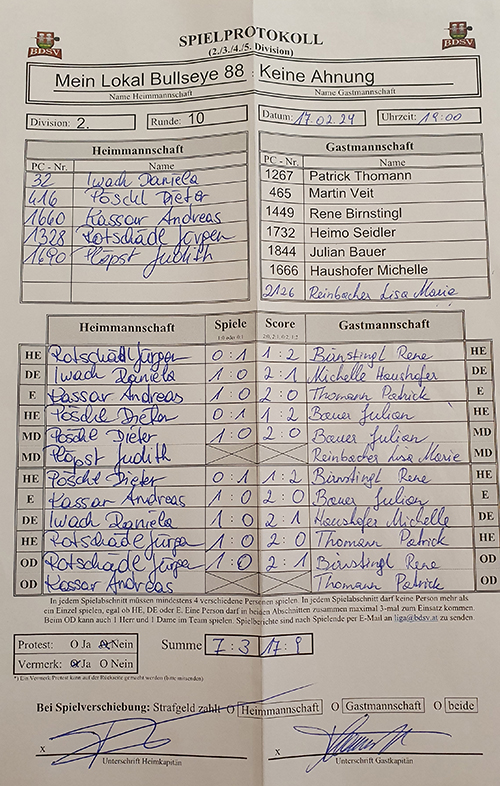 BDSV
SPIELPROTOKOLL
(2./3./4./5. Division)
BDSV
Mein Lokal Bullseye 88 : Keine Ahnung
Name Heimmannschaft Name Gastmannschaft
Division: 2. Runde: 10 Datum: 17.02.24 Uhrzeit: 19:00
Heimmannschaft
PC - Nr. Name
32 Iwach Daniela
416 Pöschl Dieter
1660 Kassar Andreas
1328 Rotschädl Jürgen
1690 Plöpst Judith
Gastmannschaft
PC - Nr. Name
1267 Patrick Thomann
465 Martin Veit
1449 Rene Birnstingl
1732 Heimo Seidler
1844 Julian Bauer
1666 Haushofer Michelle
2126 Reinbacher Lisa Marie
Heimmannschaft Spiele Score Gastmannschaft
1:0 oder 0:1 2:0, 2:1, 0:2, 1:2
HE Rotschädl Jürgen 0:1 1:2 Birnstingl Rene HE
DE Iwach Daniela 1:0 2:1 Michelle Haushofer DE
E Kassar Andreas 1:0 2:0 Thomann Patrick E
HE Pöschl Dieter 0:1 1:2 Bauer Julian HE
MD Pöschl Dieter 1:0 2:0 Bauer Julian MD
MD Plöpst Judith Reinbacher Lisa Marie MD
HE Pöschl Dieter 0:1 1:2 Birnstingl Rene HE
E Kassar Andreas 1:0 2:0 Bauer Julian E
DE Iwach Daniela 1:0 2:1 Haushofer Michelle DE
HE Rotschädl Jürgen 1:0 2:0 Thomann Patrick HE
OD Rotschädl Jürgen 1:0 2:1 Birnstingl Rene OD
OD Kassar Andreas Thomann Patrick OD
In jedem Spielabschnitt müssen mindestens 4 verschiedene Personen spielen. In jedem Spielabschnitt darf keine Person mehr als
ein Einzel spielen, egal ob HE, DE oder E. Eine Person darf in beiden Abschnitten zusammen maximal 3-mal zum Einsatz kommen
Beim OD kann auch 1 Herr und 1 Dame im Team spielen. Spielberichte sind nach Spielende per E-Mail an liga@bdsv.at zu senden
Protest: O Ja O Nein Summe 7:3 17:9
Vermerk: O Ja O Nein
*) Ein Vermerk/Protest kann auf der Rückseite gemacht werden (bitte mitsenden)
Bei Spielverschiebung: Strafgeld zahlt O Heimmannschaft O Gastmannschaft O beide
x x
Unterschrift Heimkapitän Unterschrift Gastkapitän